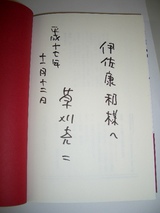 伊佐康和様へ
草刈亮二
平成十七年
十一月十二日